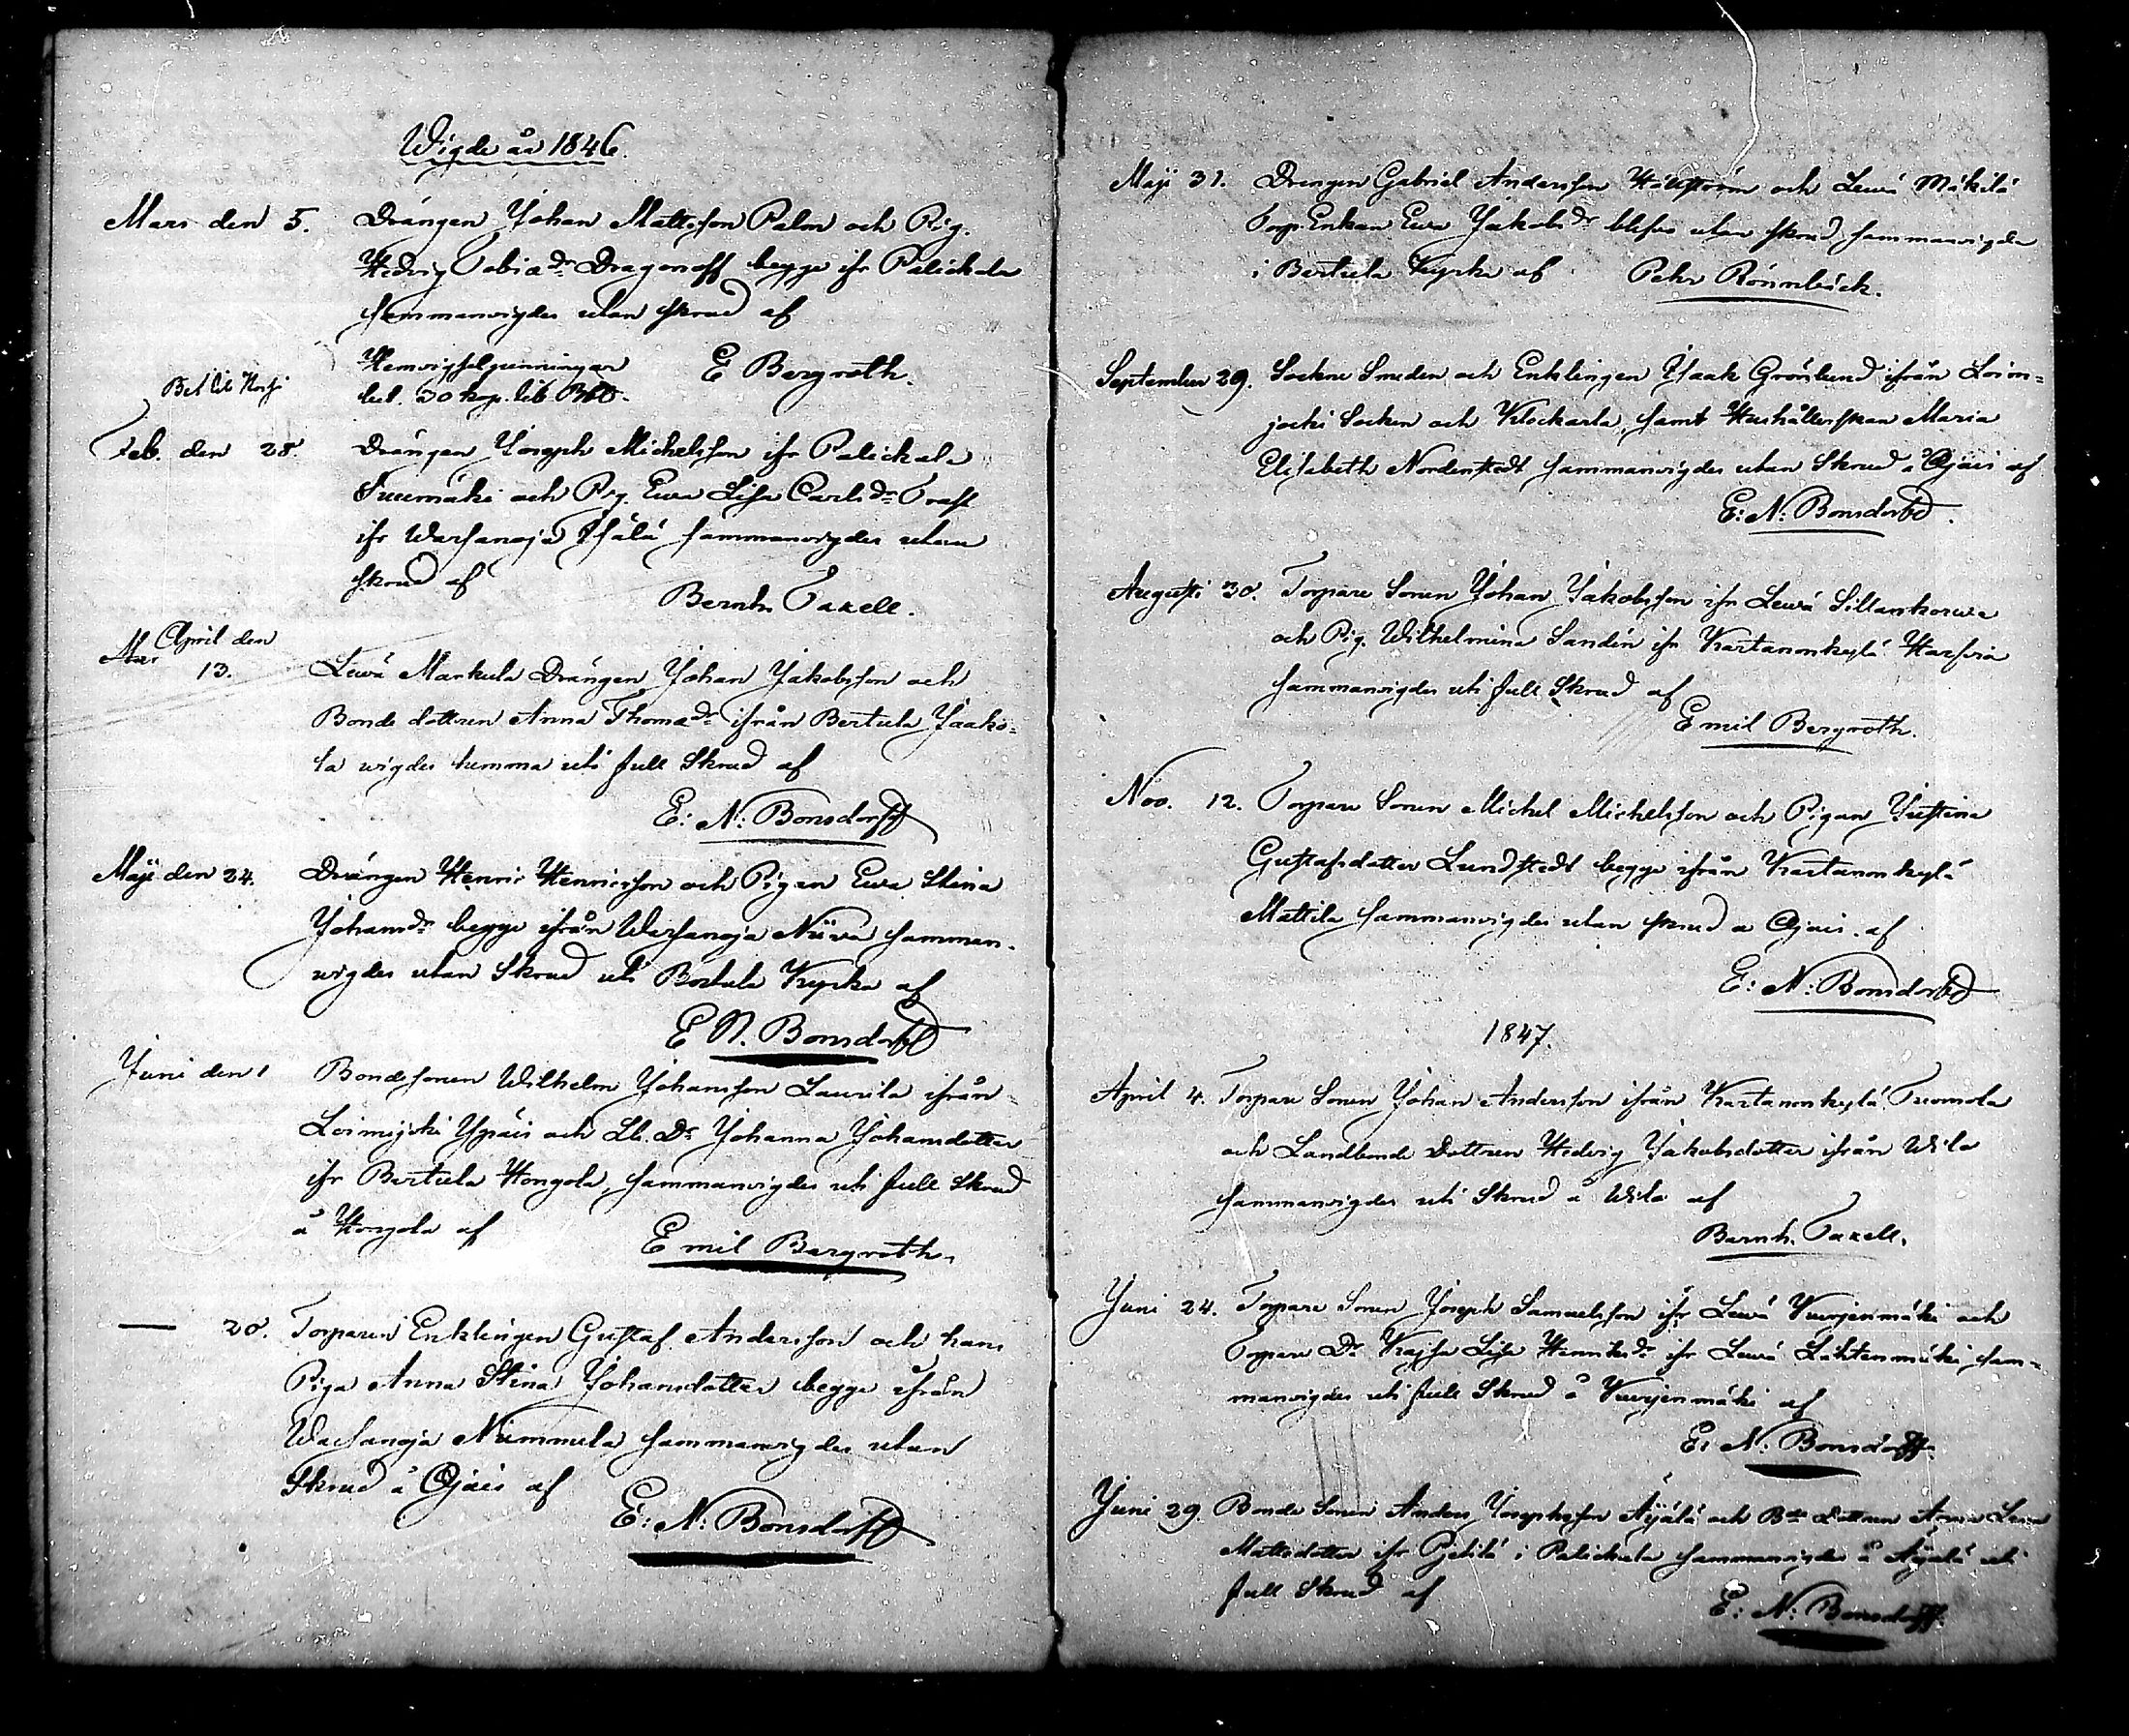 Wigde år 1846.
Mars den 5. Drängen Johan Mattsson Palm och Pig.
Hedvig Tobiadr Dragonoff begge ifr Palickala
sammanvigdes utan skrud af
Hemvigselpenningar E Bergroth.
bet. 30 kop.
Feb. den 28. Drängen Joseph Michelsson ifr Palickala
och Pig. Ewa Lisa Carlsdr Trast
ifr Warsanoja sammanvigdes utan
skrud af
Bernh. Taxell.
April den
13. Lewä Markula Drängen Johan Jakobsson och
Bonde dottren Anna Thomadr ifrån Bertula Jaako=
la vigdes hemma uti full Skrud af
E: N: Bonsdorff
Maji den 24. Drängen Henric Henricsson och Pigan Ewa Stina
Johansdr begge ifrån Warsanoja Niuva samman-
vigdes utan Skrud uti Bertula Kyrka af
E N. Bonsdorff
Juni den 1 Bondesonen Wilhelm Johansson Laurila ifrån
Loimijoki Ypäis och Lb. Dr Johanna Johansdotter
ifr Bertula Hongola, sammanvigdes uti full Skrud
å Hongola af
Emil Bergroth.
— 20. Torparen Enklingen Gustaf Andersson och hans
Piga Anna Stina Johansdotter begge ifrån
Warsanoja Nummela sammanvigdes utan
Skrud å Ojais af
E: N: Bonsdorff
Maji 31. Drengen Gabriel Andersson och Lewä Mäkilä
Torp. Enkan Ewa Jakobsdr utan skrud sammanvigda
i Bertula Kyrka af Petr Rönnbäck.
September 29. Sockne Smeden och Enklingen Isaak Grönlund ifrån Loim=
jocki Socken och Klockarla, samt Hushållerskan Maria
Elisabeth Nordenstedt sammanvigdes utan Skrud å Ojais af
E: N: Bonsdorff.
Augusti 30. Torpare Sonen Johan Jakobsson ifr Lewä Sillankorwa
och Pig. Wilhelmina Sandén ifr Kartanonkylä Harsia
sammanvigdes uti full Skrud af
Emil Bergroth.
Nov. 12. Torpare Sonen Michel Michelsson och Pigan Justina
Gustafsdotter Lundstedt begge ifrån Kartanonkylä
Mattila sammanvigdes utan skrud a Ojais af
E: N: Bonsdorff
1847.
April 4. Torpare Sonen Johan Andersson ifrån Kartanonkylä Tuomola
och Landbonde Dottren Hedvig Jakobsdotter ifrån Wila
sammanvigdes uti Skrud å Wila af
Bernh. Taxell.
Juni 24. Torpare Sonen Joseph Samuelsson ifr Lewä Vuorjenmäki och
Torpare Dr Kajsa Lisa Henriksdr ifr Lewä Lähtenmäki sam=
manvigdes uti full Skrud å Vuorjenmäki af
E: N: Bonsdorff.
Juni 29. Bonde Sonen Anders Josephsson Äijälä och Bde Dottren Anna Lena
Mattsdotter ifr i Palickala sammanvigdes å Äijälä uti
full Skrud af
E: N: Bonsdorff.